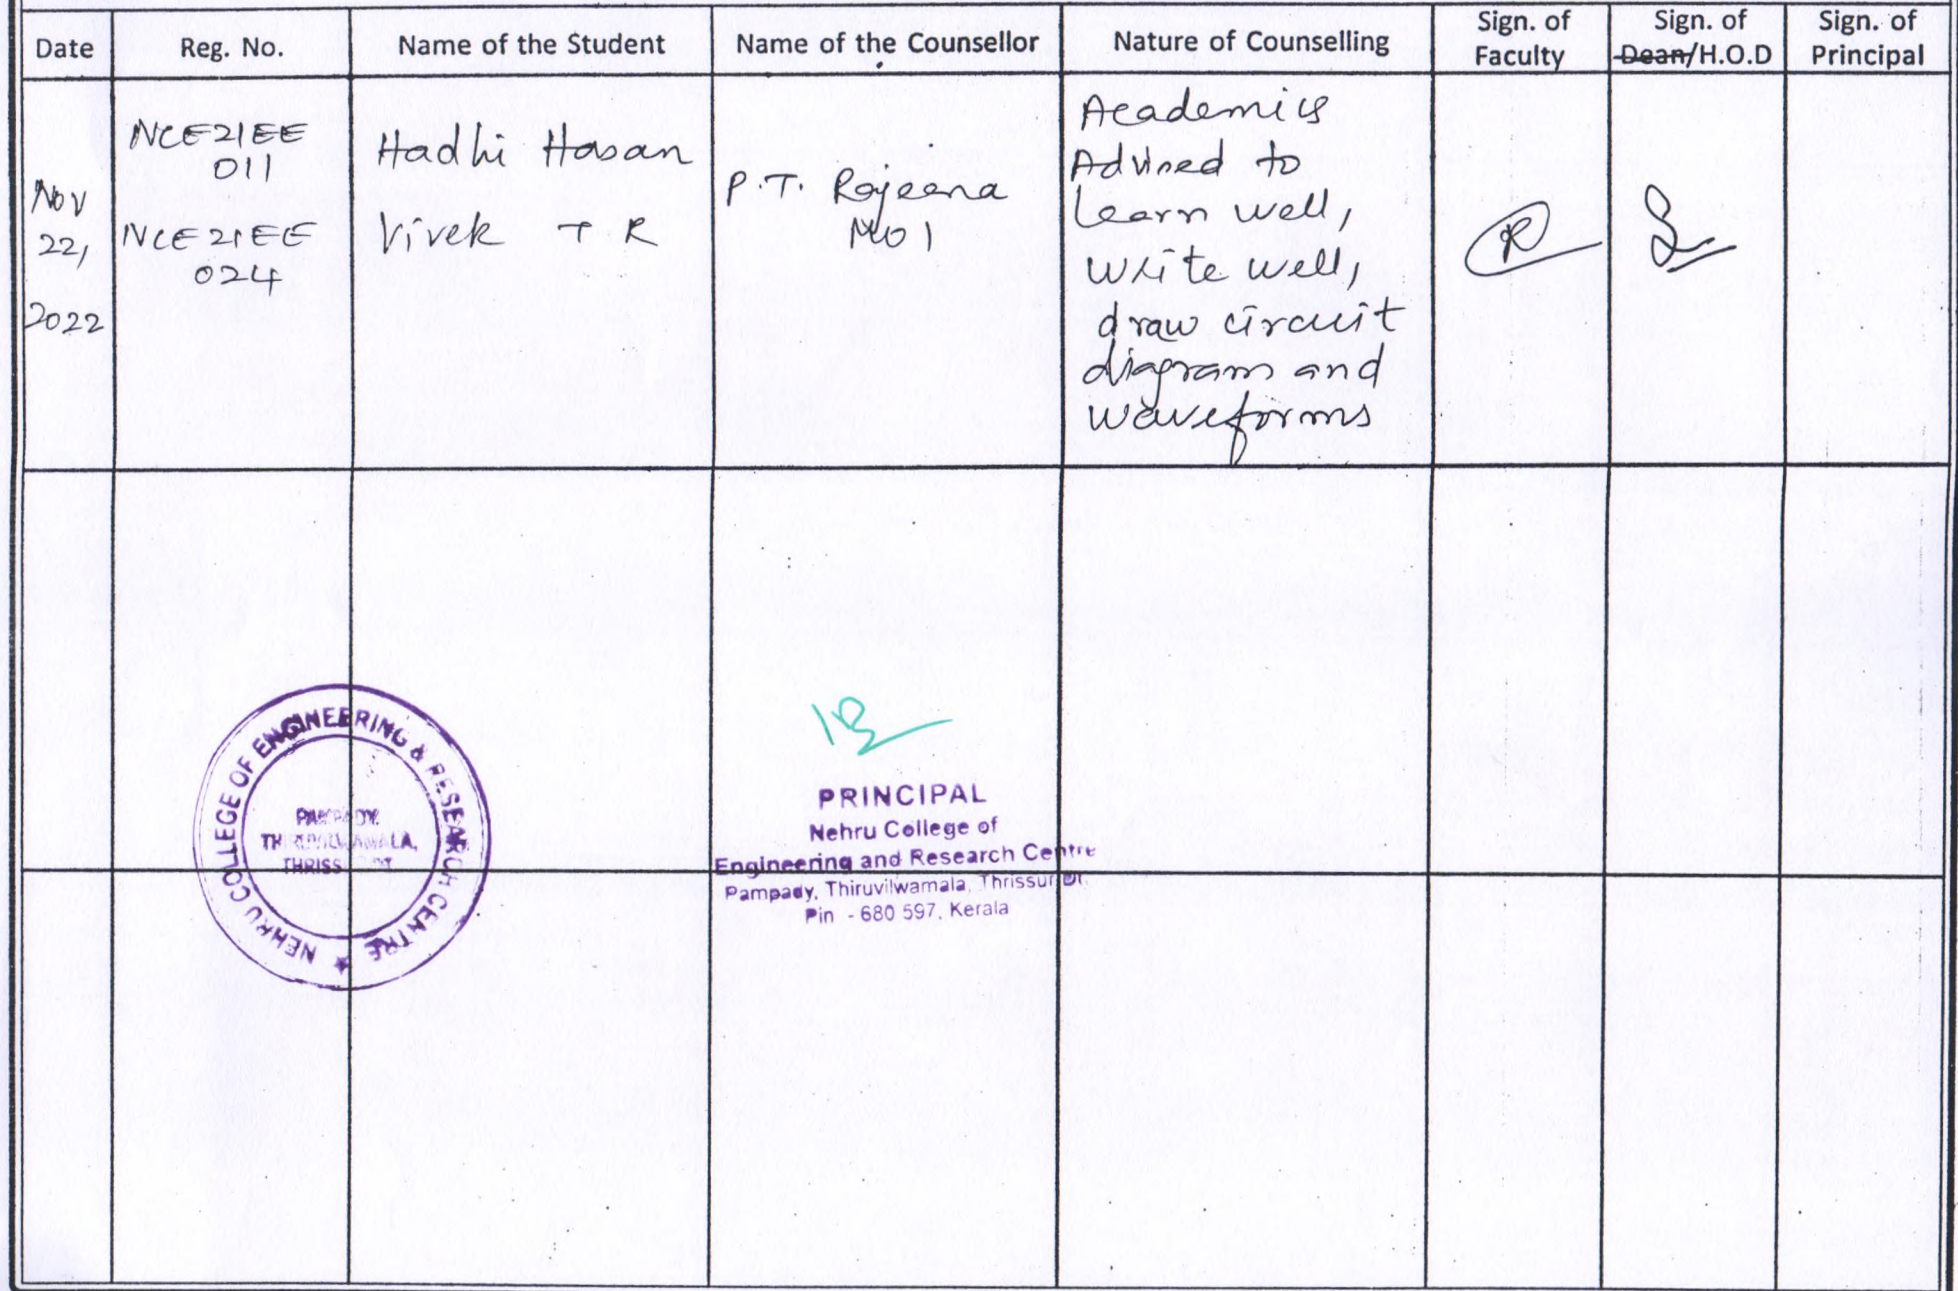 Date
Reg. No.
Name of the Student
Name of the Counsellor
Nature of Counselling
Sign. of
Faculty
Sign. of
Dean/H.O.D
Sign. of
Principal
Nov
22,
2022
NCE21EE
011
NCE21EE
024
Hadhi Hasan
Vivek T R
P.T. Rojeena
Academics
Advised to
learn well,
write well,
draw circuit
diagram and
waveforms
NEHRU COLLEGE OF ENGINEERING & RESEARCH CENTRE
PAMPADY,
PRINCIPAL
Nehru College of
Engineering and Research Centre
Pampady, Thiruvilwamala, Thrissur Dt.
Pin - 680 597, Kerala